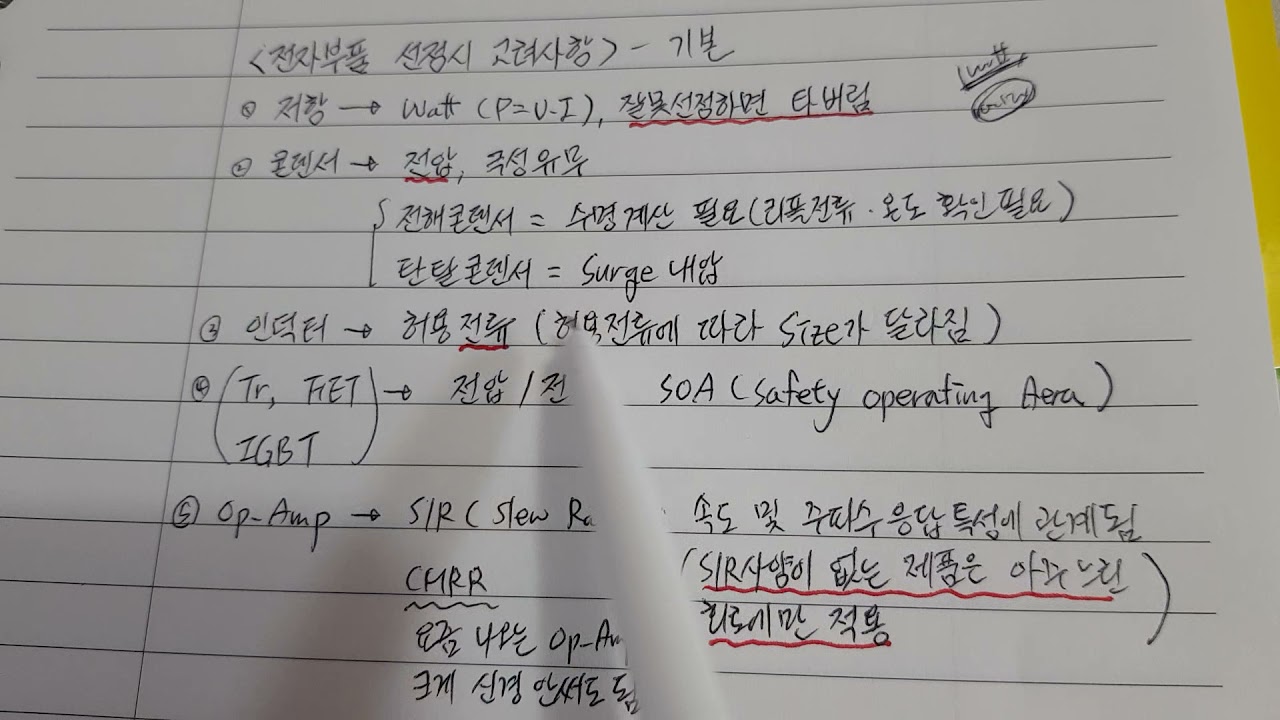 <전자부품 선정시 고려사항> - 기본
① 저항 → Watt (P=V·I), 잘못선정하면 타버림
② 콘덴서 → 전압, 극성유무
전해콘덴서 = 수명계산 필요(리플전류·온도 확인필요)
탄탈콘덴서 = Surge 내압
③ 인덕터 → 허용전류 (허용전류에 따라 Size가 달라짐)
④ (Tr, FET → 전압/전 SOA (Safety operating Aera)
IGBT)
⑤ Op-Amp → S/R (Slew Ra 속도 및 주파수 응답특성에 관계됨
CMRR (S/R사양이 없는 제품은 아주느린
요즘 나오는 Op-Am 회로에만 적용)
크게 신경 안써도 됨